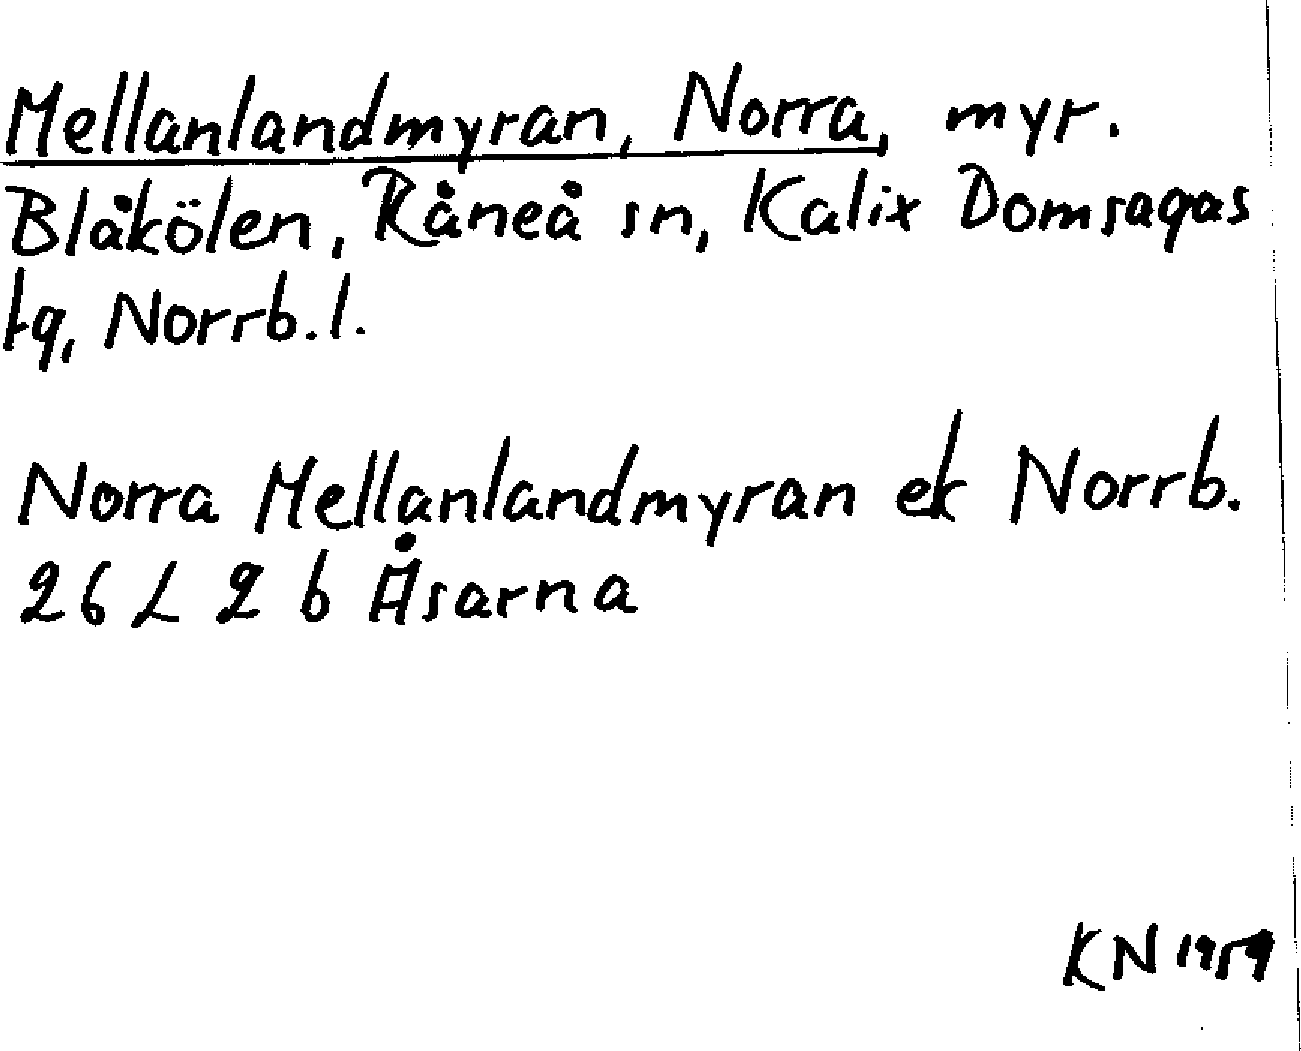 Mellanlandmyran, Norra, myr.
Blåkölen, Råneå sn, Kalix Domsagas
tg, Norrb. l.
Norra Mellanlandmyran ek Norrb.
26 L 2 b Åsarna
KN 1959